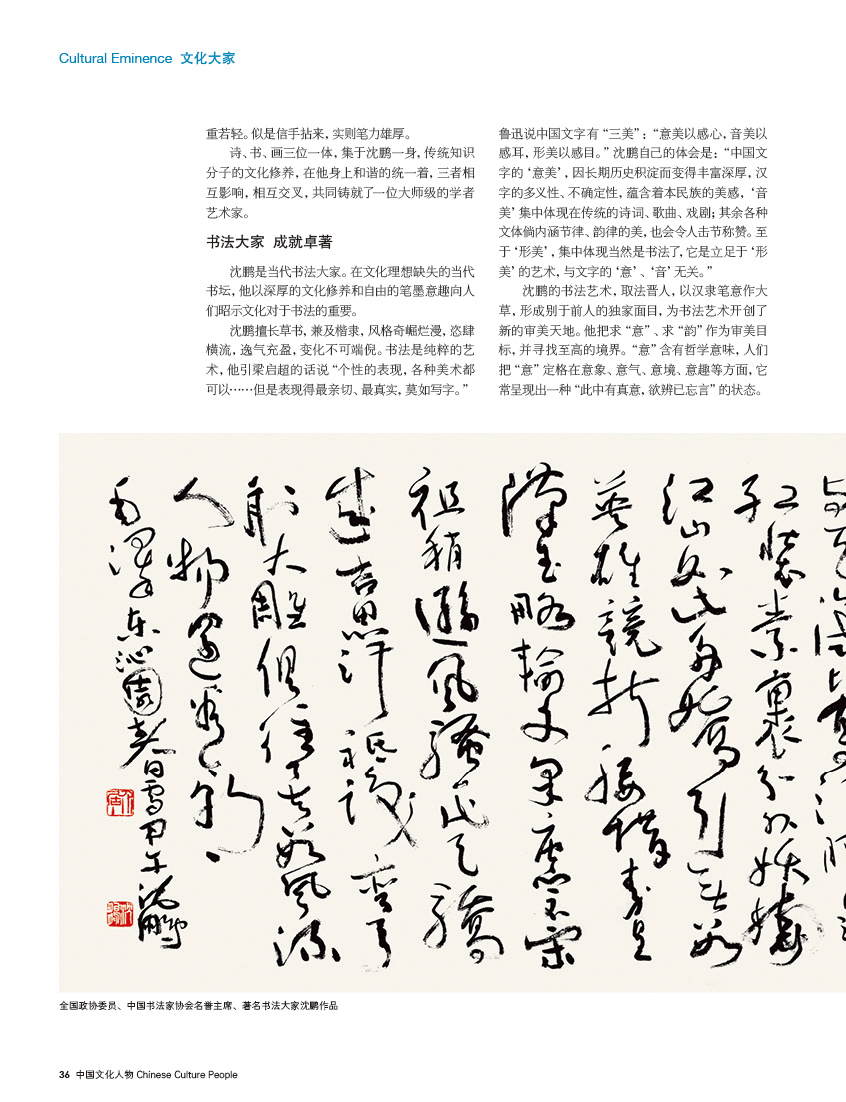 Cultural Eminence 文化大家
重若轻。似是信手拈来，实则笔力雄厚。
诗、书、画三位一体，集于沈鹏一身，传统知识
分子的文化修养，在他身上和谐的统一着，三者相
互影响，相互交叉，共同铸就了一位大师级的学者
艺术家。
书法大家 成就卓著
沈鹏是当代书法大家。在文化理想缺失的当代
书坛，他以深厚的文化修养和自由的笔墨意趣向人
们昭示文化对于书法的重要。
沈鹏擅长草书，兼及楷隶，风格奇崛烂漫，恣肆
横流，逸气充盈，变化不可端倪。书法是纯粹的艺
术，他引梁启超的话说“个性的表现，各种美术都
可以……但是表现得最亲切、最真实，莫如写字。”
鲁迅说中国文字有“三美”：“意美以感心，音美以
感耳，形美以感目。”沈鹏自己的体会是：“中国文
字的‘意美’，因长期历史积淀而变得丰富深厚，汉
字的多义性、不确定性，蕴含着本民族的美感，‘音
美’集中体现在传统的诗词、歌曲、戏剧；其余各种
文体倘内涵节律、韵律的美，也会令人击节称赞。至
于‘形美’，集中体现当然是书法了，它是立足于‘形
美’的艺术，与文字的‘意’、‘音’无关。”
沈鹏的书法艺术，取法晋人，以汉隶笔意作大
草，形成别于前人的独家面目，为书法艺术开创了
新的审美天地。他把求“意”、求“韵”作为审美目
标，并寻找至高的境界。“意”含有哲学意味，人们
把“意”定格在意象、意气、意境、意趣等方面，它
常呈现出一种“此中有真意，欲辨已忘言”的状态。
红裝素裹分外妖嬈
江山如此多嬌引無數
英雄競折腰惜秦皇
漢武略輸文采唐宗宋
祖稍遜風騷一代天驕
成吉思汗祇識彎弓
射大雕俱往矣數風流
人物還看今朝
毛澤東沁園春雪甲午沈鵬
全国政协委员、中国书法家协会名誉主席、著名书法大家沈鹏作品
36 中国文化人物 Chinese Culture People